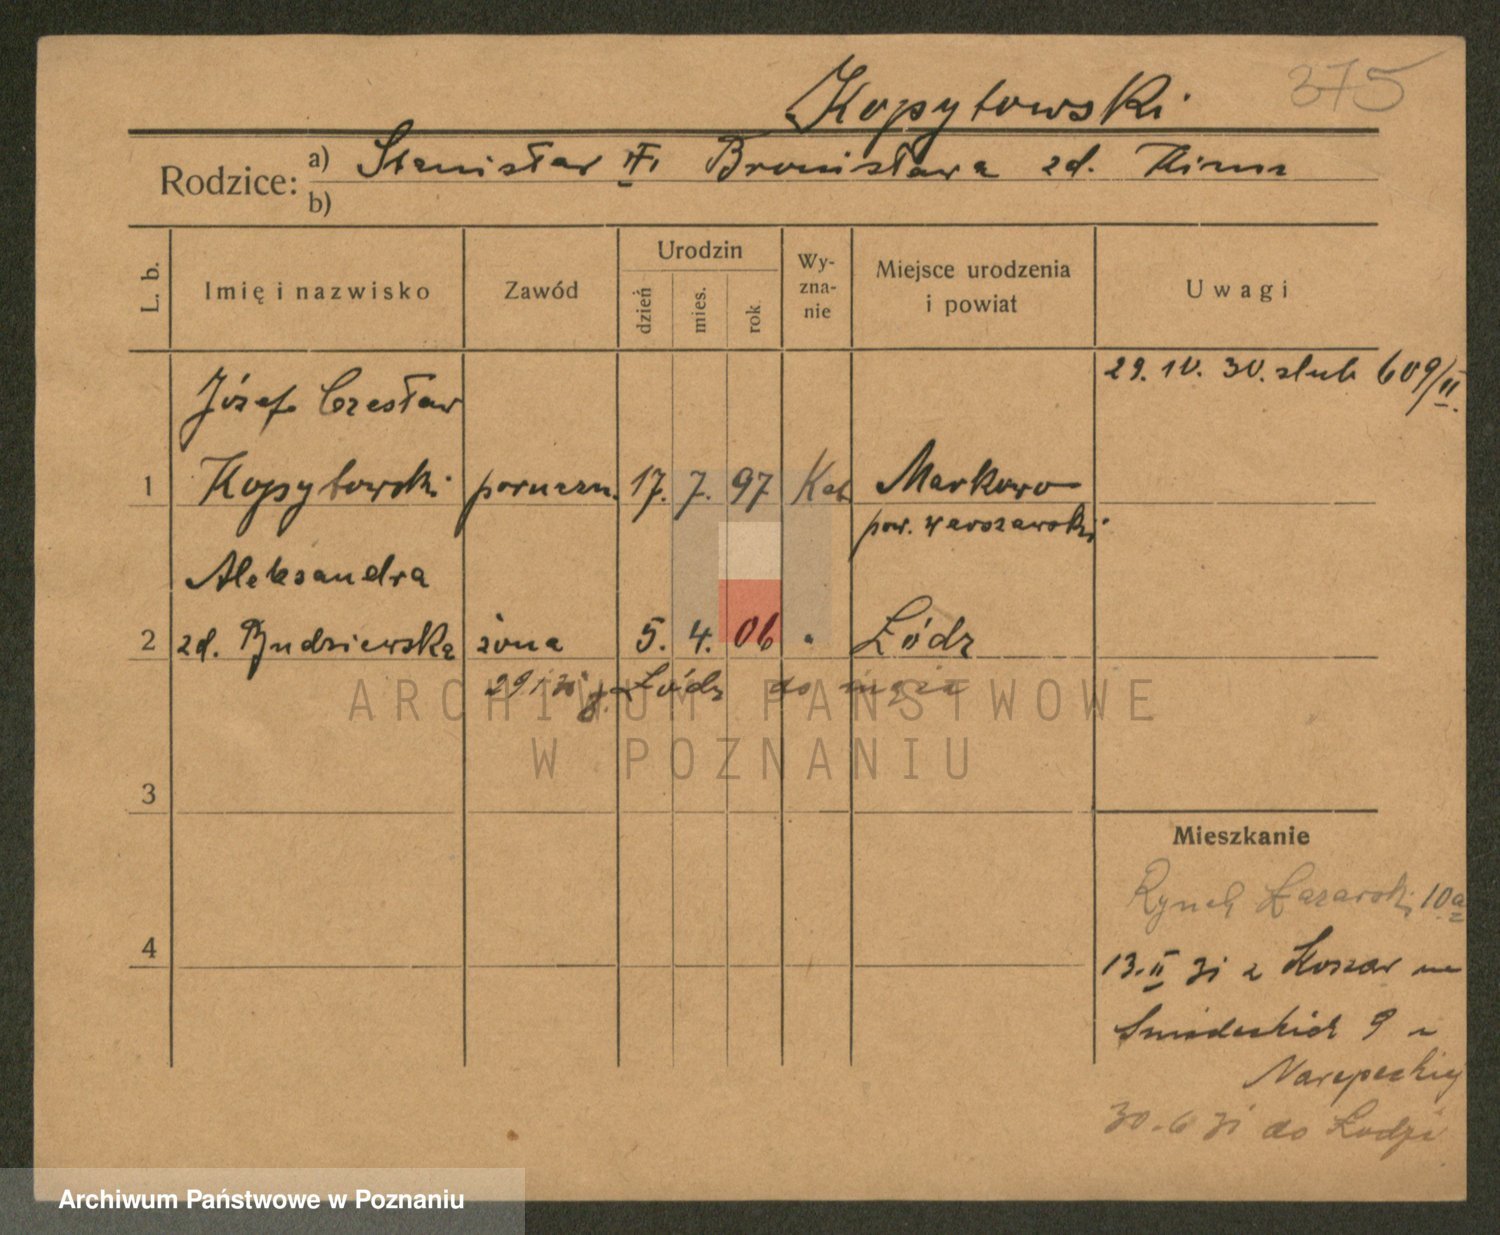 Kopytowski
375
Rodzice: a) Stanisław Bronisława zd.
b)
L. b.
Imię i nazwisko
Zawód
Urodzin
dzień
mies.
rok
Wy-
zna-
nie
Miejsce urodzenia
i powiat
Uwagi
29. IV. 30. slub 609/II.
Józef Czesław
1 Kopytowski poruczn. 17. 7. 97 Kat Markowo
pow. warszawski
Aleksandra
2 zd. Budziewska żona 5. 4. 06 " Łódz
Łódz do męża
ARCHIWUM PAŃSTWOWE
W POZNANIU
3
Mieszkanie
Rynek Łazarski 10a
4
13. II 31 z Koszar
Śniadeckich 9 u
30. 6 31 do Łodzi
Archiwum Państwowe w Poznaniu